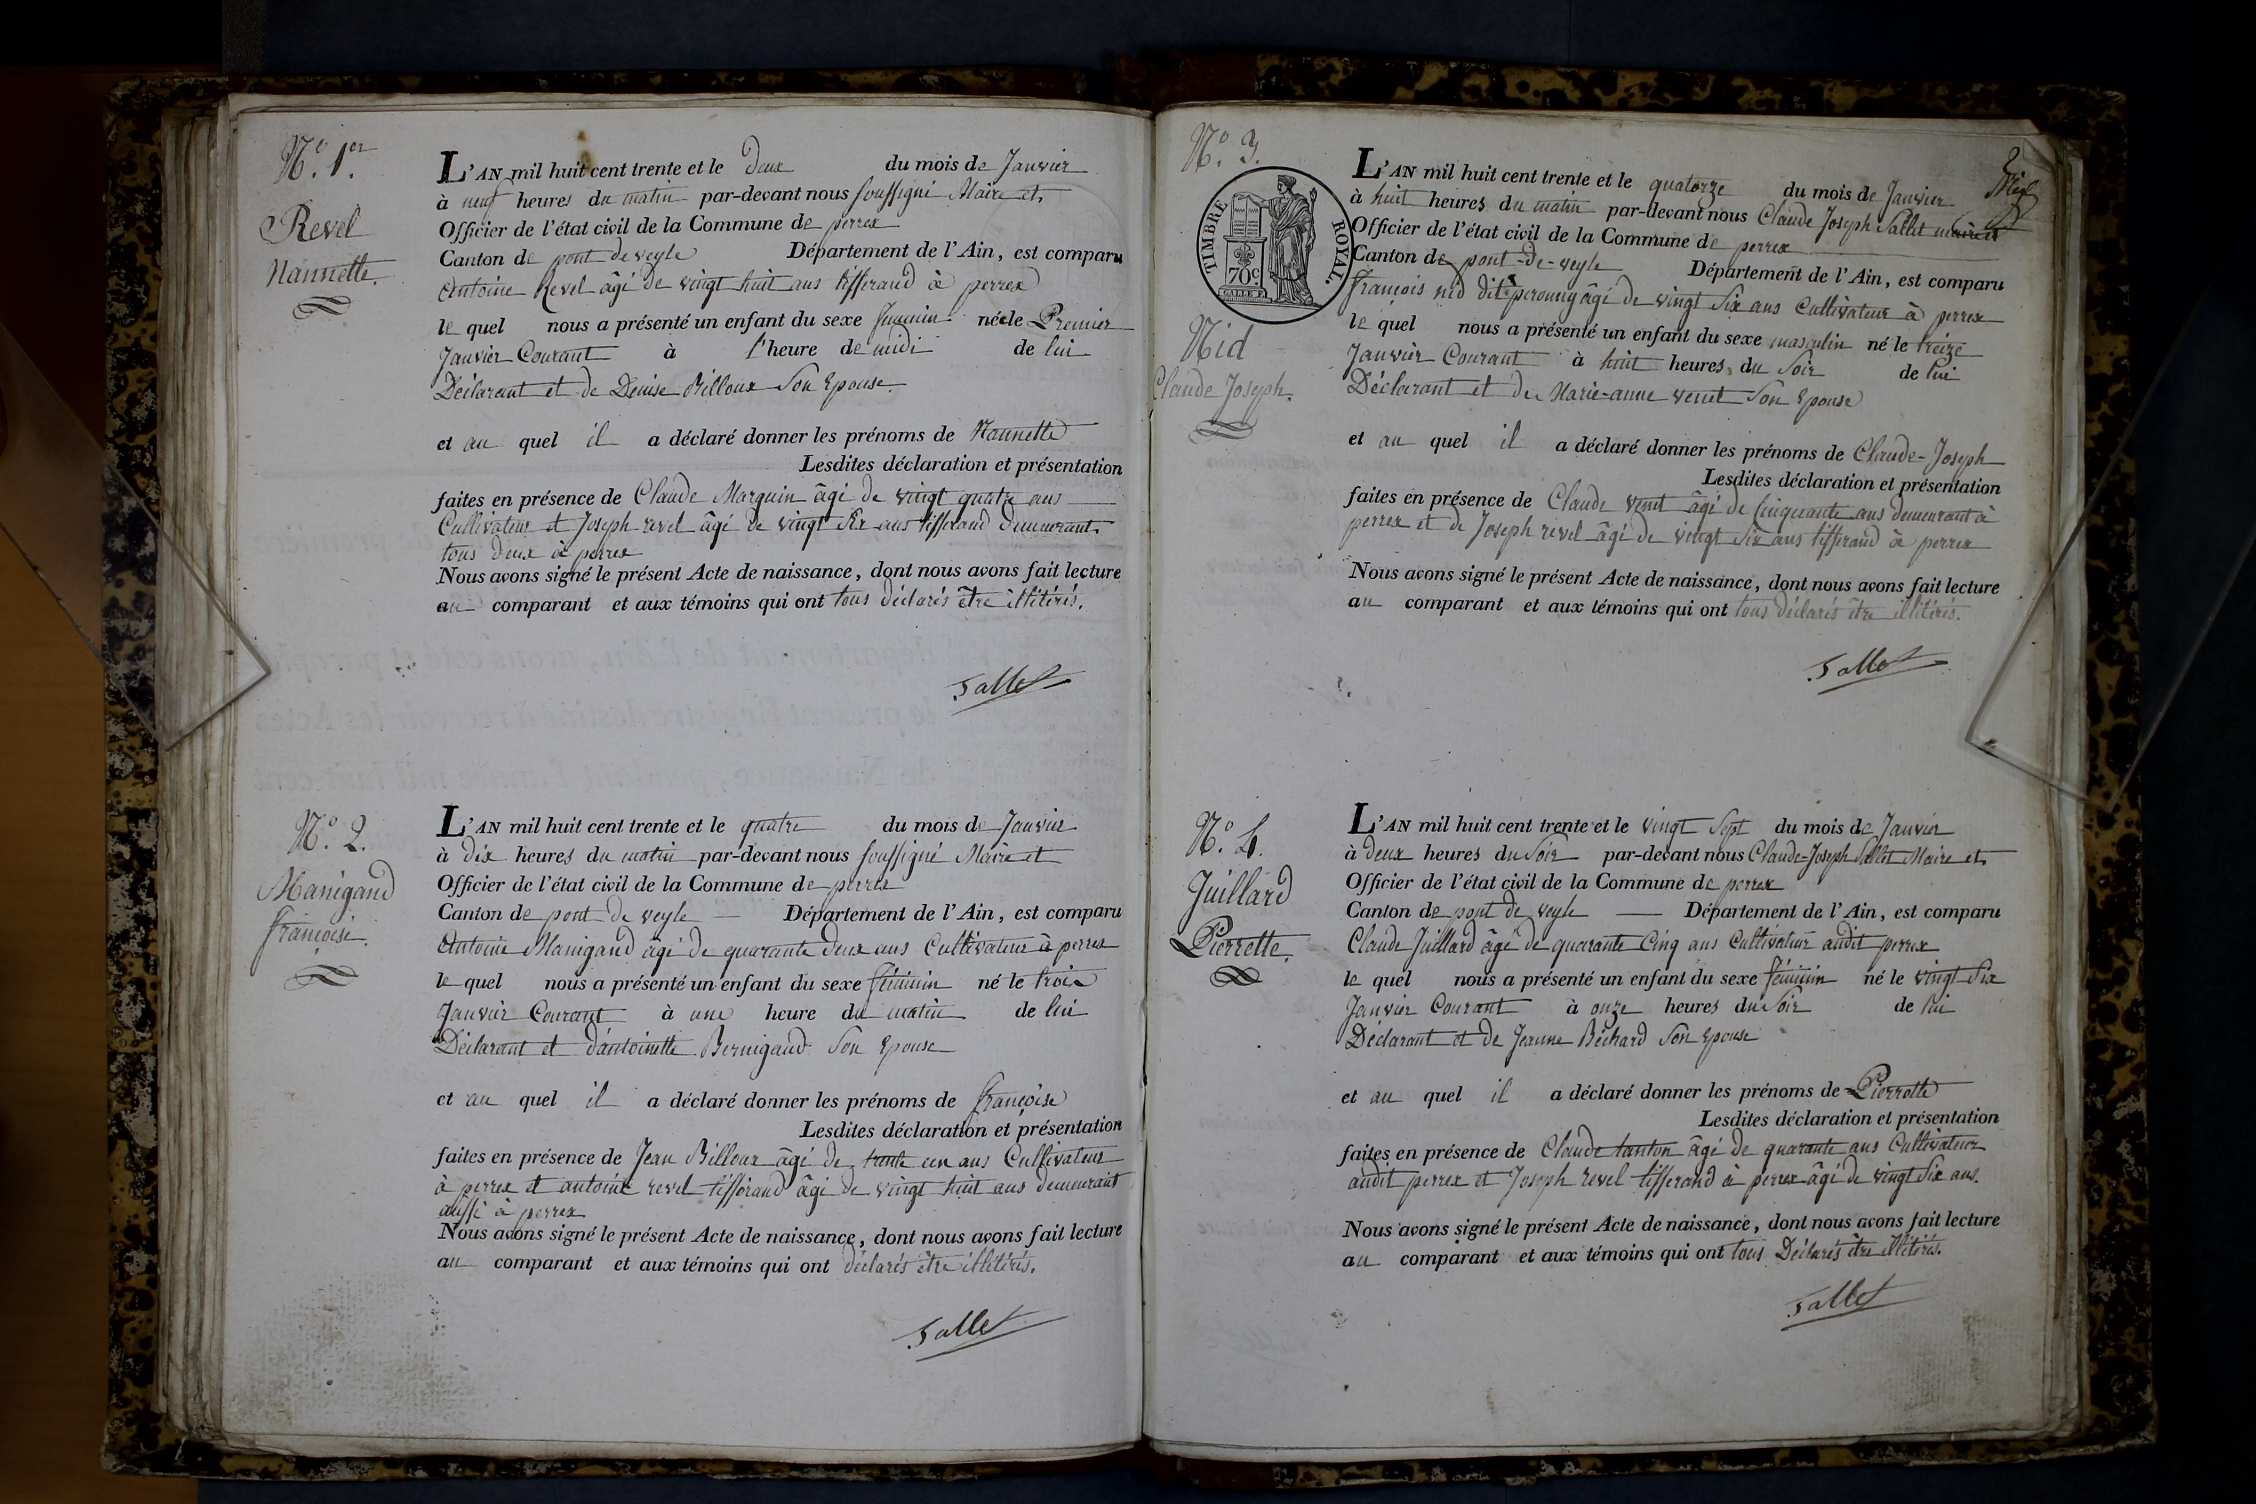 N.º 1.er
Revel
Nannette.
L'AN mil huit cent trente et le deux du mois de Janvier
à neuf heures du matin par-devant nous soussigné Maire et
Officier de l'état civil de la Commune de perrex
Canton de pont de veyle Département de l'Ain, est comparu
Antoine Revel âgé de vingt huit ans tisserand à perrex
le quel nous a présenté un enfant du sexe féminin née le Premier
Janvier Courant à l'heure de midi de lui
Déclarant et de Denise Billoux Son Epouse.
et au quel il a déclaré donner les prénoms de Nannette
Lesdites déclaration et présentation
faites en présence de Claude Marguin âgé de vingt quatre ans
Cultivateur et Joseph revel âgé de vingt Six ans tisserand demeurant
tous deux à perrex
Nous avons signé le présent Acte de naissance, dont nous avons fait lecture
au comparant et aux témoins qui ont tous déclarés être illitérés.
Sallet
N.º 2.
Manigand
françoise.
L'AN mil huit cent trente et le quatre du mois de Janvier
à dix heures du matin par-devant nous soussigné Maire et
Officier de l'état civil de la Commune de perrex
Canton de pont de veyle Département de l'Ain, est comparu
Antoine Manigand âgé de quarante deux ans Cultivateur à perrex
le quel nous a présenté un enfant du sexe féminin né le trois
Janvier Courant à une heure du matin de lui
Déclarant et d'antoinette Bernigaud Son Epouse
et au quel il a déclaré donner les prénoms de françoise
Lesdites déclaration et présentation
faites en présence de Jean Billoux âgé de trente un ans Cultivateur
à perrex et antoine revel tisserand âgé de vingt huit ans demeurant
aussi à perrex
Nous avons signé le présent Acte de naissance, dont nous avons fait lecture
au comparant et aux témoins qui ont déclarés être illitérés.
Sallet
N.º 3.
TIMBRE ROYAL.
70c
Nid
Claude Joseph.
L'AN mil huit cent trente et le quatorze du mois de Janvier
à huit heures du matin par-devant nous Claude Joseph Sallet maire et
Officier de l'état civil de la Commune de perrex
Canton de pont-de-veyle Département de l'Ain, est comparu
françois nid dit âgé de vingt Six ans Cultivateur à perrex
le quel nous a présenté un enfant du sexe masculin né le treize
Janvier Courant à huit heures du Soir de lui
Déclarant et de Marie-anne venet Son Epouse
et au quel il a déclaré donner les prénoms de Claude-Joseph
Lesdites déclaration et présentation
faites en présence de Claude venet âgé de Cinquante ans demeurant à
perrex et de Joseph revel âgé de vingt Six ans tisserand à perrex
Nous avons signé le présent Acte de naissance, dont nous avons fait lecture
au comparant et aux témoins qui ont tous déclarés être illitérés.
Sallet
N.º 4.
Juillard
Pierrette.
L'AN mil huit cent trente et le vingt Sept du mois de Janvier
à deux heures du Soir par-devant nous Claude-Joseph Sallet Maire et
Officier de l'état civil de la Commune de perrex
Canton de pont de veyle Département de l'Ain, est comparu
Claude Juillard âgé de quarante Cinq ans Cultivateur audit perrex
le quel nous a présenté un enfant du sexe féminin né le vingt Six
Janvier Courant à onze heures du Soir de lui
Déclarant et de Jeanne Béchard Son Epouse
et au quel il a déclaré donner les prénoms de Pierrette
Lesdites déclaration et présentation
faites en présence de Claude tanton âgé de quarante ans Cultivateur
audit perrex et Joseph revel tisserand à perrex âgé de vingt Six ans.
Nous avons signé le présent Acte de naissance, dont nous avons fait lecture
au comparant et aux témoins qui ont tous Déclarés être illitérés.
Sallet